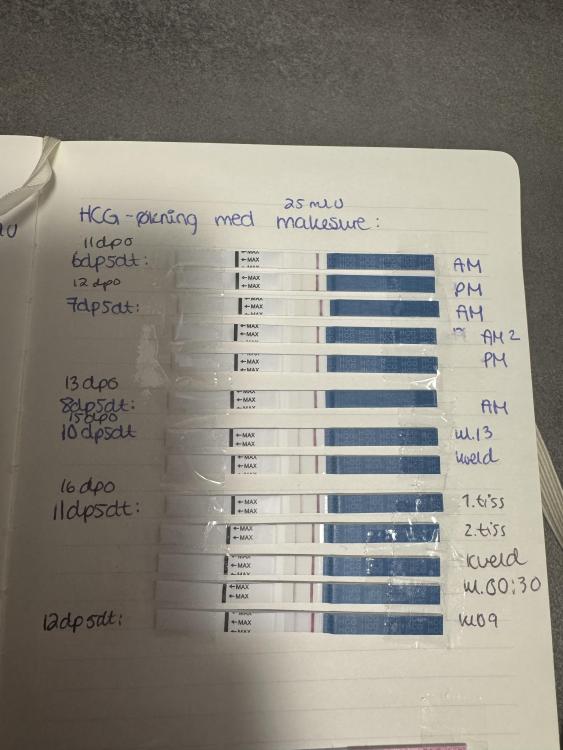 25 mIU
HCG-økning med makesure:
11dpo
6dp5dt: ←MAX AM
12 dpo ←MAX PM
7dp5dt: ←MAX AM
←MAX AM 2
←MAX PM
13 dpo
8dp5dt: ←MAX AM
15dpo
10dp5dt ←MAX kl.13
←MAX kveld
16 dpo
11dp5dt: ←MAX 1.tiss
←MAX 2.tiss
←MAX kveld
←MAX kl.00:30
12dp5dt: ←MAX kl09